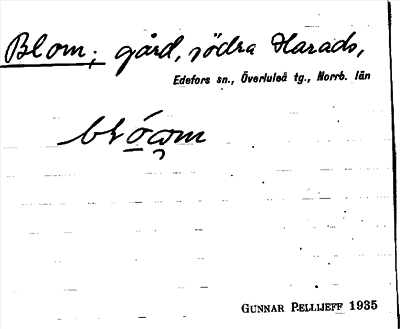 Blom; gård, södra Harads,
Edefors sn., Överluleå tg., Norrb. län
GUNNAR PELLIJEFF 1935